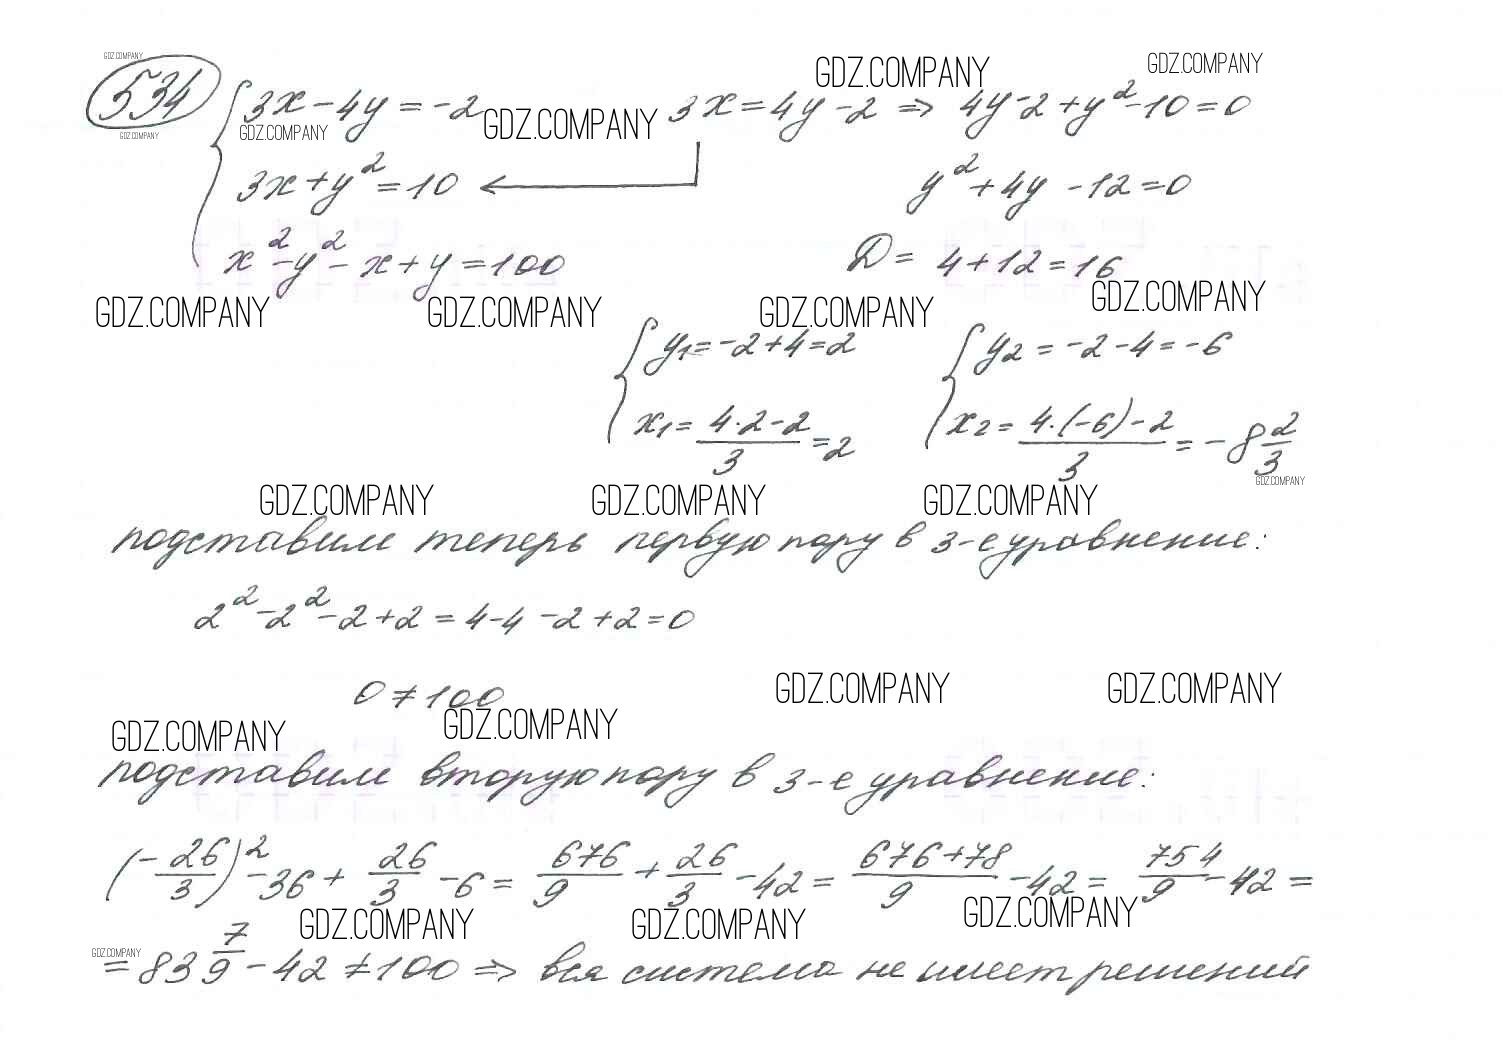 GDZ.COMPANY
534
GDZ.COMPANY
3x - 4y = -2
GDZ.COMPANY
GDZ.COMPANY
3x = 4y - 2 => 4y - 2 + y² - 10 = 0
GDZ.COMPANY
GDZ.COMPANY
3x + y² = 10
y² + 4y - 12 = 0
x² - y² - x + y = 100
D = 4 + 12 = 16
GDZ.COMPANY GDZ.COMPANY GDZ.COMPANY GDZ.COMPANY
y₁ = -2 + 4 = 2
y₂ = -2 - 4 = -6
x₁ = (4·2-2)/3 = 2
x₂ = (4·(-6)-2)/3 = -8 2/3
GDZ.COMPANY
GDZ.COMPANY GDZ.COMPANY GDZ.COMPANY
подставим теперь первую пару в 3-е уравнение:
2² - 2² - 2 + 2 = 4 - 4 - 2 + 2 = 0
0 ≠ 100
GDZ.COMPANY GDZ.COMPANY
GDZ.COMPANY GDZ.COMPANY
подставим вторую пару в 3-е уравнение:
(-26/3)² - 36 + 26/3 - 6 = 676/9 + 26/3 - 42 = (676+78)/9 - 42 = 754/9 - 42 =
GDZ.COMPANY GDZ.COMPANY GDZ.COMPANY
GDZ.COMPANY
= 83 7/9 - 42 ≠ 100 => вся система не имеет решений